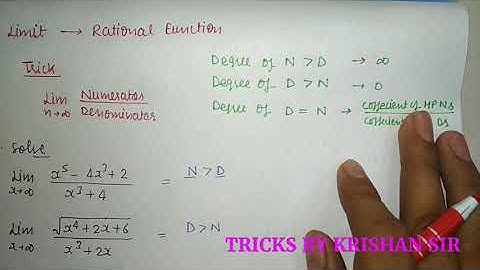 Limit → Rational Function
Trick
Lim n→∞ Numerator / Denominator
Degree of N > D → ∞
Degree of D > N → 0
Degree of D = N → coefficient of HP Ns / coefficient Ds
Solve
Lim x→∞ x⁵ - 4x³ + 2 / x³ + 4 = N > D
Lim x→∞ √x⁴ + 2x + 6 / x³ + 2x = D > N
TRICKS BY KRISHAN SIR